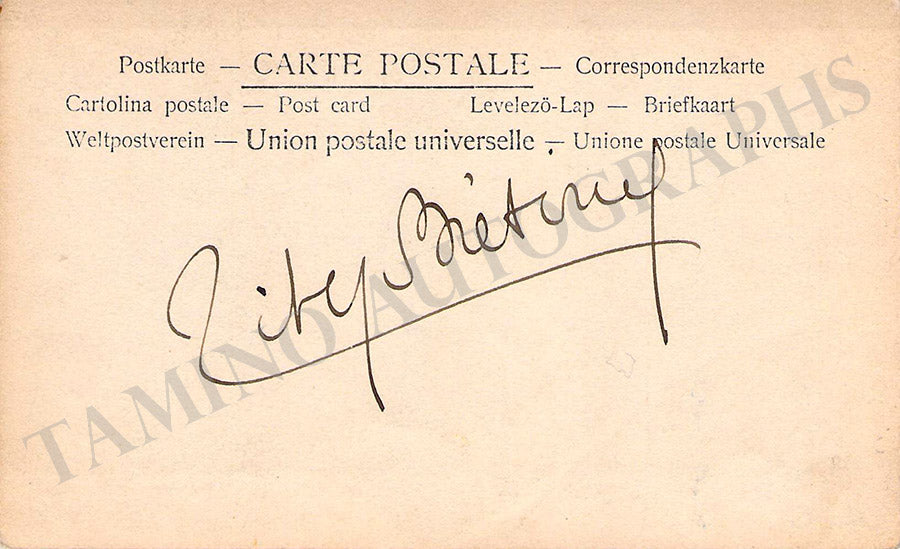 Postkarte — CARTE POSTALE — Correspondenzkarte
Cartolina postale — Post card Levelezö-Lap — Briefkaart
Weltpostverein — Union postale universelle — Unione postale Universale
TAMINO AUTOGRAPHS